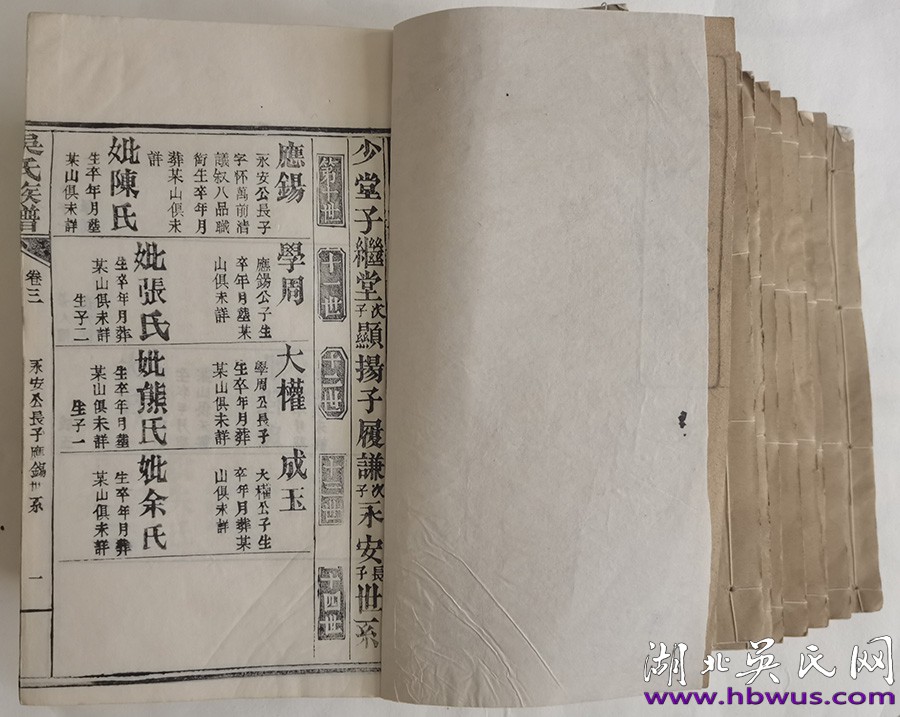 少堂子繼堂次子顯揚子履謙次子永安長子世系
第十世
十一世
十二世
十三世
十四世
應錫
永安公長子
字怀萬前清
議叙八品職
銜生卒年月
葬某山俱未
詳
妣陳氏
生卒年月塟
某山俱未詳
學周
應錫公子生
卒年月塟某
山俱未詳
妣張氏
生卒年月葬
某山俱未詳
生子二
大權
學周公長子
生卒年月葬
某山俱未詳
妣熊氏
生卒年月塟
某山俱未詳
生子一
成玉
大權公子生
卒年月葬某
山俱未詳
妣余氏
生卒年月葬
某山俱未詳
吳氏族譜
卷三
永安公長子應錫世系
一
湖北吴氏网
www.hbwus.com